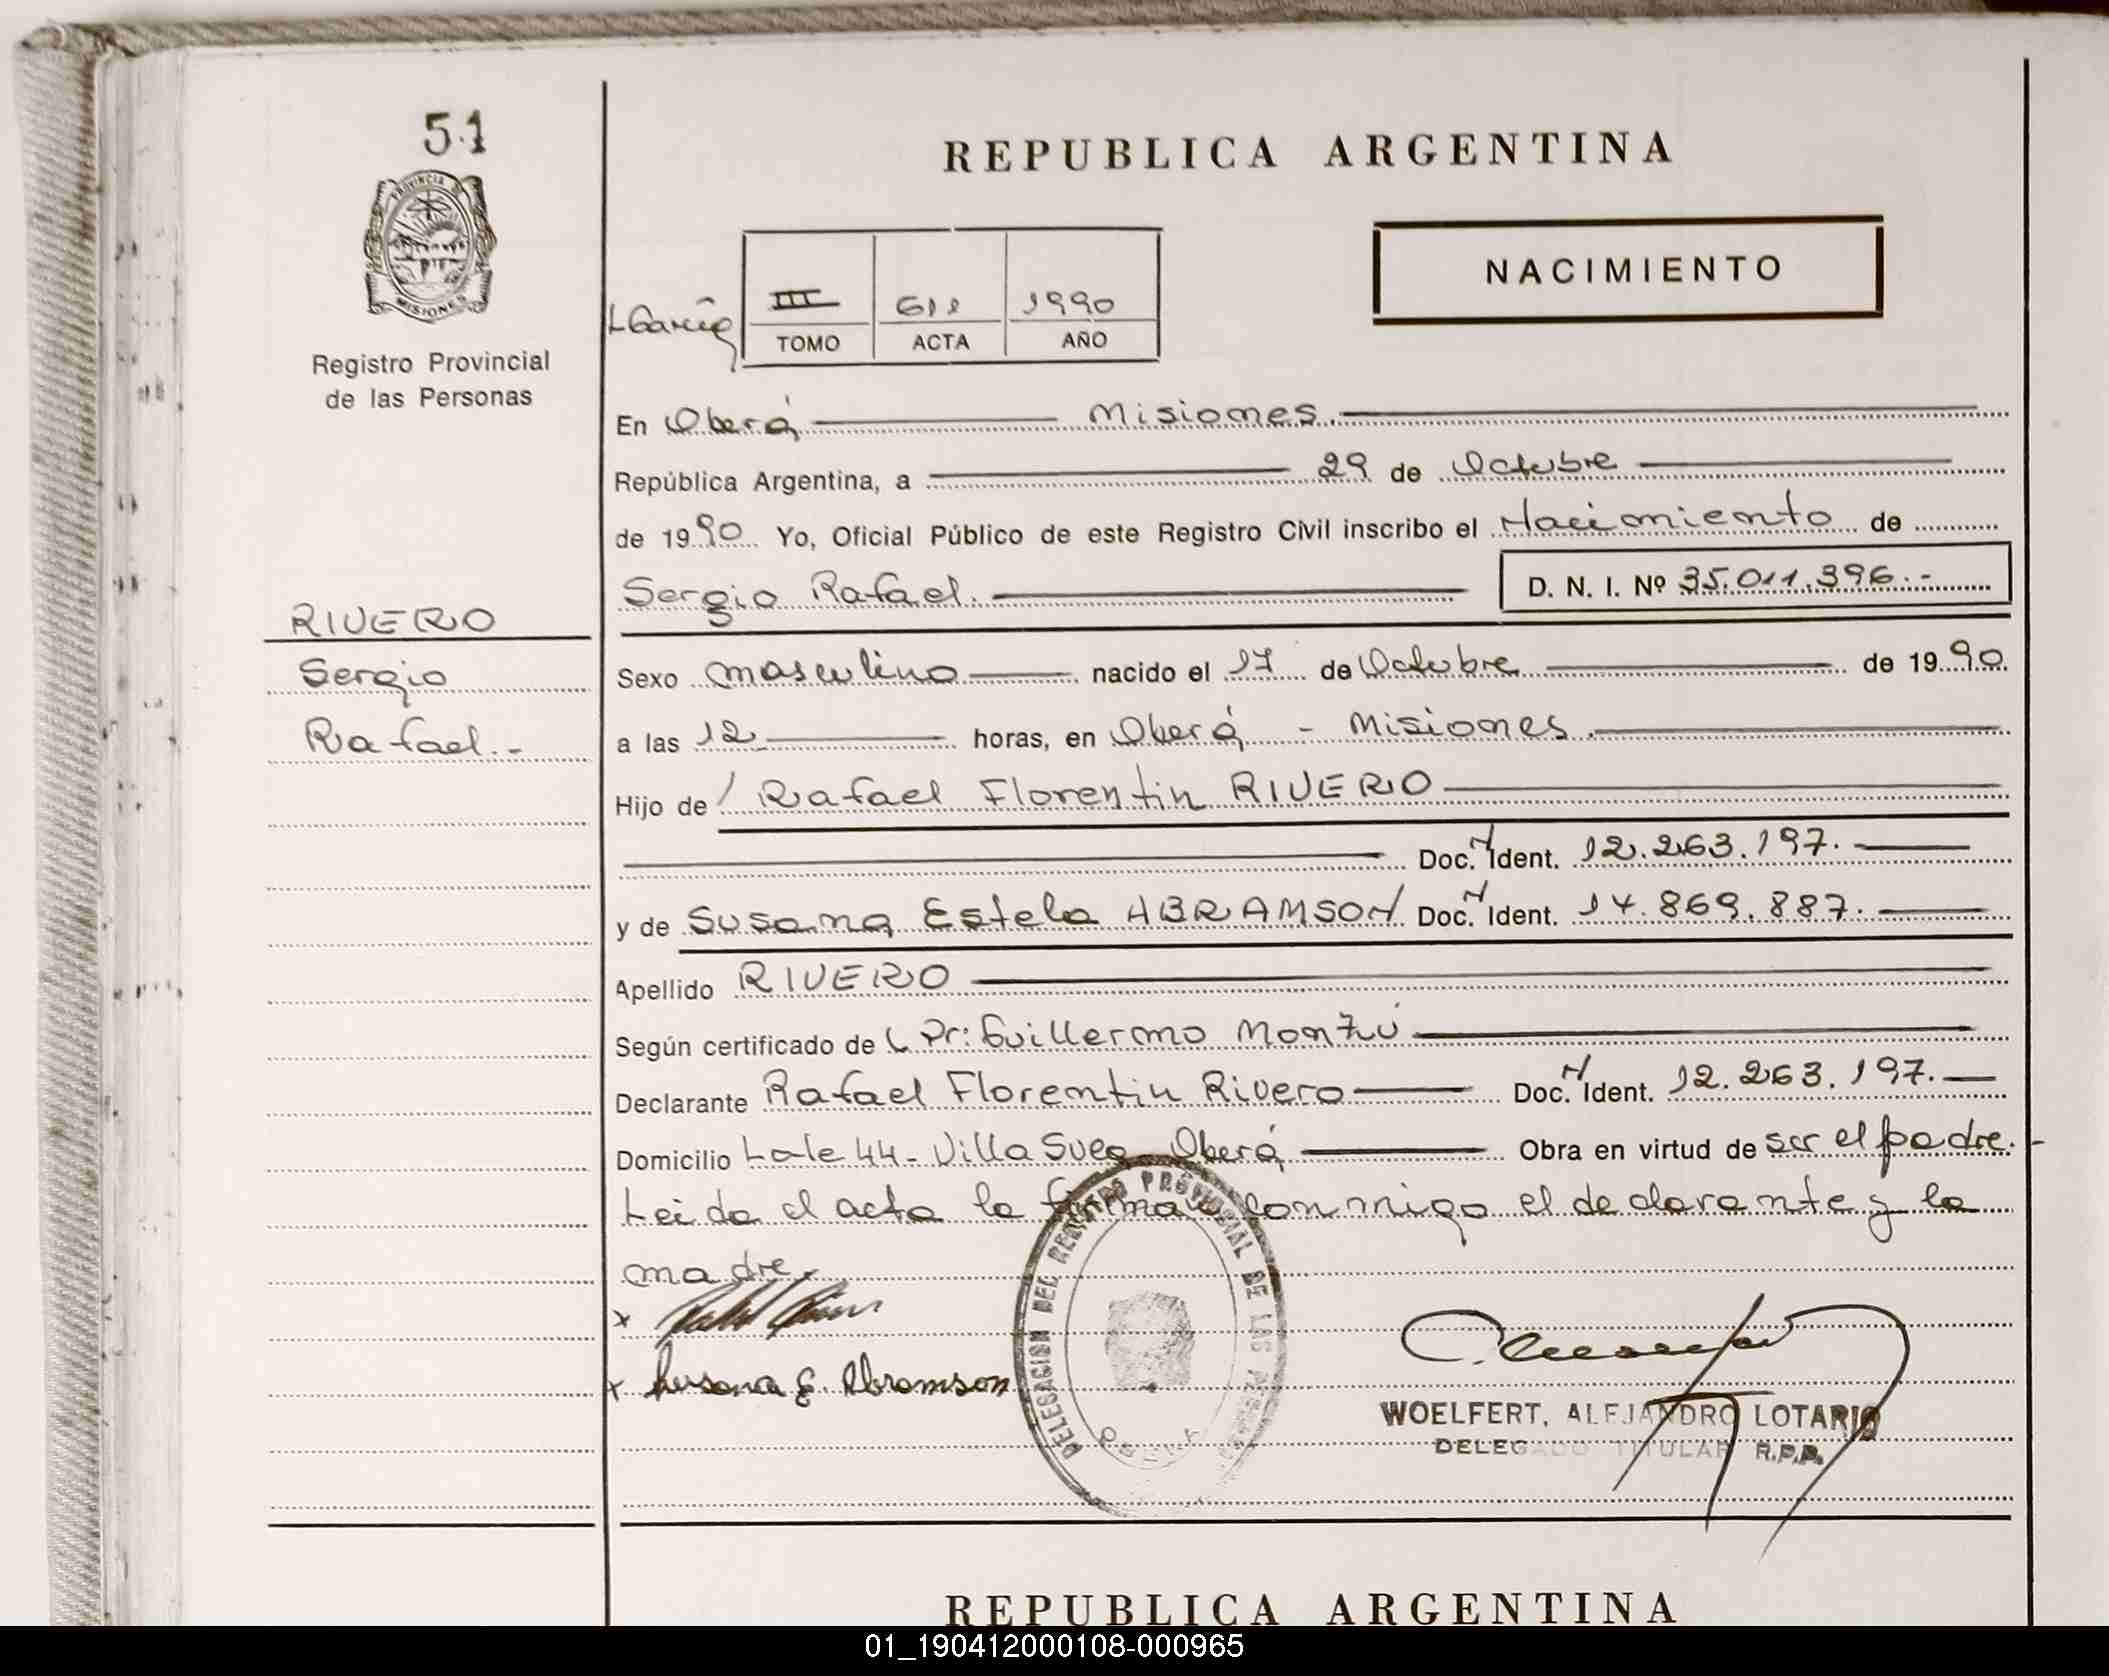 51
REPUBLICA ARGENTINA
PROVINCIA DE
MISIONES
NACIMIENTO
Registro Provincial
de las Personas
L Garcia
III 611 1990
TOMO ACTA AÑO
En Oberá Misiones.
República Argentina, a 29 de Octubre
de 1990 Yo, Oficial Público de este Registro Civil inscribo el Nacimiento de
Sergio Rafael. D. N. I. Nº 35.011.396.-
RIVERO
Sergio
Rafael.-
Sexo masculino nacido el 17 de Octubre de 1990
a las 12 horas, en Oberá - Misiones.
Hijo de Rafael Florentin RIVERO
Doc. N Ident. 12.263.197.
y de Susana Estela ABRAMSON Doc. N Ident. 14.869.887.
Apellido RIVERO
Según certificado de Dr: Guillermo Monzú
Declarante Rafael Florentin Rivero Doc. N Ident. 12.263.197.
Domicilio Lote 44 - Villa Svea Oberá Obra en virtud de ser el padre.-
Leida el acta la firman conmigo el declarante y la
madre.
x
x Susana E. Abramson
DELEGACION DEL REGISTRO PROVINCIAL DE LAS PERSONAS
OBERA
WOELFERT, ALEJANDRO LOTARIO
DELEGADO TITULAR R.P.P.
REPUBLICA ARGENTINA
01_190412000108-000965